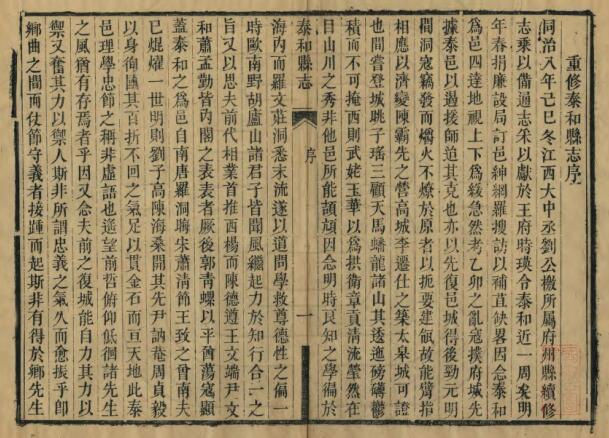 重修泰和縣志序
同治八年己巳冬江西大中丞劉公檄所屬府州縣續修
志乘以備通志采以獻於王府時瑛令泰和近一周矣明
年春捐廉設局訂邑紳網羅搜訪以補直缺畧因念泰和
爲邑四達地視上下爲緩急然考乙卯之亂寇撲府城先
據泰邑以遏援師迨其克也亦以先復邑城得後勁元明
間洞寇竊發而爝火不燎於原者以扼要建瓴故能臂指
相應以濟變陳霸先之營高城李遷仕之築太臯城可證
也間嘗登城眺子瑤三顧天馬蟠龍諸山其透迤磅礴鬱
積而不可掩西則武姥玉華以爲拱衛章貢清流瑩然在
目山川之秀非他邑所能頡頏因念明時良知之學徧於
泰和縣志
序
一
海內而羅文莊洞悉末流遂以道問學救尊德性之偏一
時歐南野胡廬山諸君子皆聞風繼起力於知行合一之
旨又以思夫前代相業首推西楊而陳德遵王文端尹文
和蕭孟勤皆內閣之表表者厥後郭青螺以平酋蕩寇顯
蓋泰和之爲邑自南唐羅洞晦宋蕭淸節王致之曾南夫
已焜燿一世明則劉子高陳海桑開其先尹訥菴周貞毅
以身徇國其百折不回之氣足以貫金石而亘天地此泰
邑理學忠節之稱非虛語也遙望前哲俯仰低徊諸先生
之風猶有存焉者乎因又念夫前之復城能自力其力以
禦又奮其力以禦人斯非所謂忠義之氣久而愈振乎卽
鄉曲之間而仗節守義者接踵而起斯非有得於鄉先生